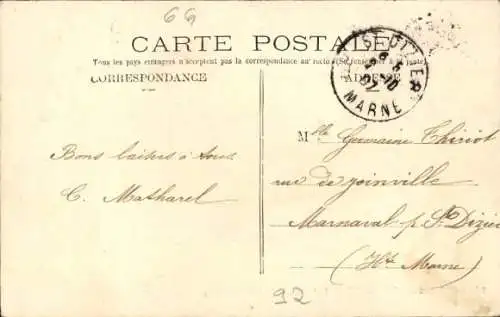 69
CARTE POSTALE
Tous les pays étrangers n'acceptent pas la correspondance au recto (Se renseigner à la poste)
CORRESPONDANCE
ADRESSE
MARNE
Mlle Germaine Thiriot
Bons baisers à tous
rue de Joinville
C. Matharel
Marnaval p. St Dizier
(Hte Marne)
92